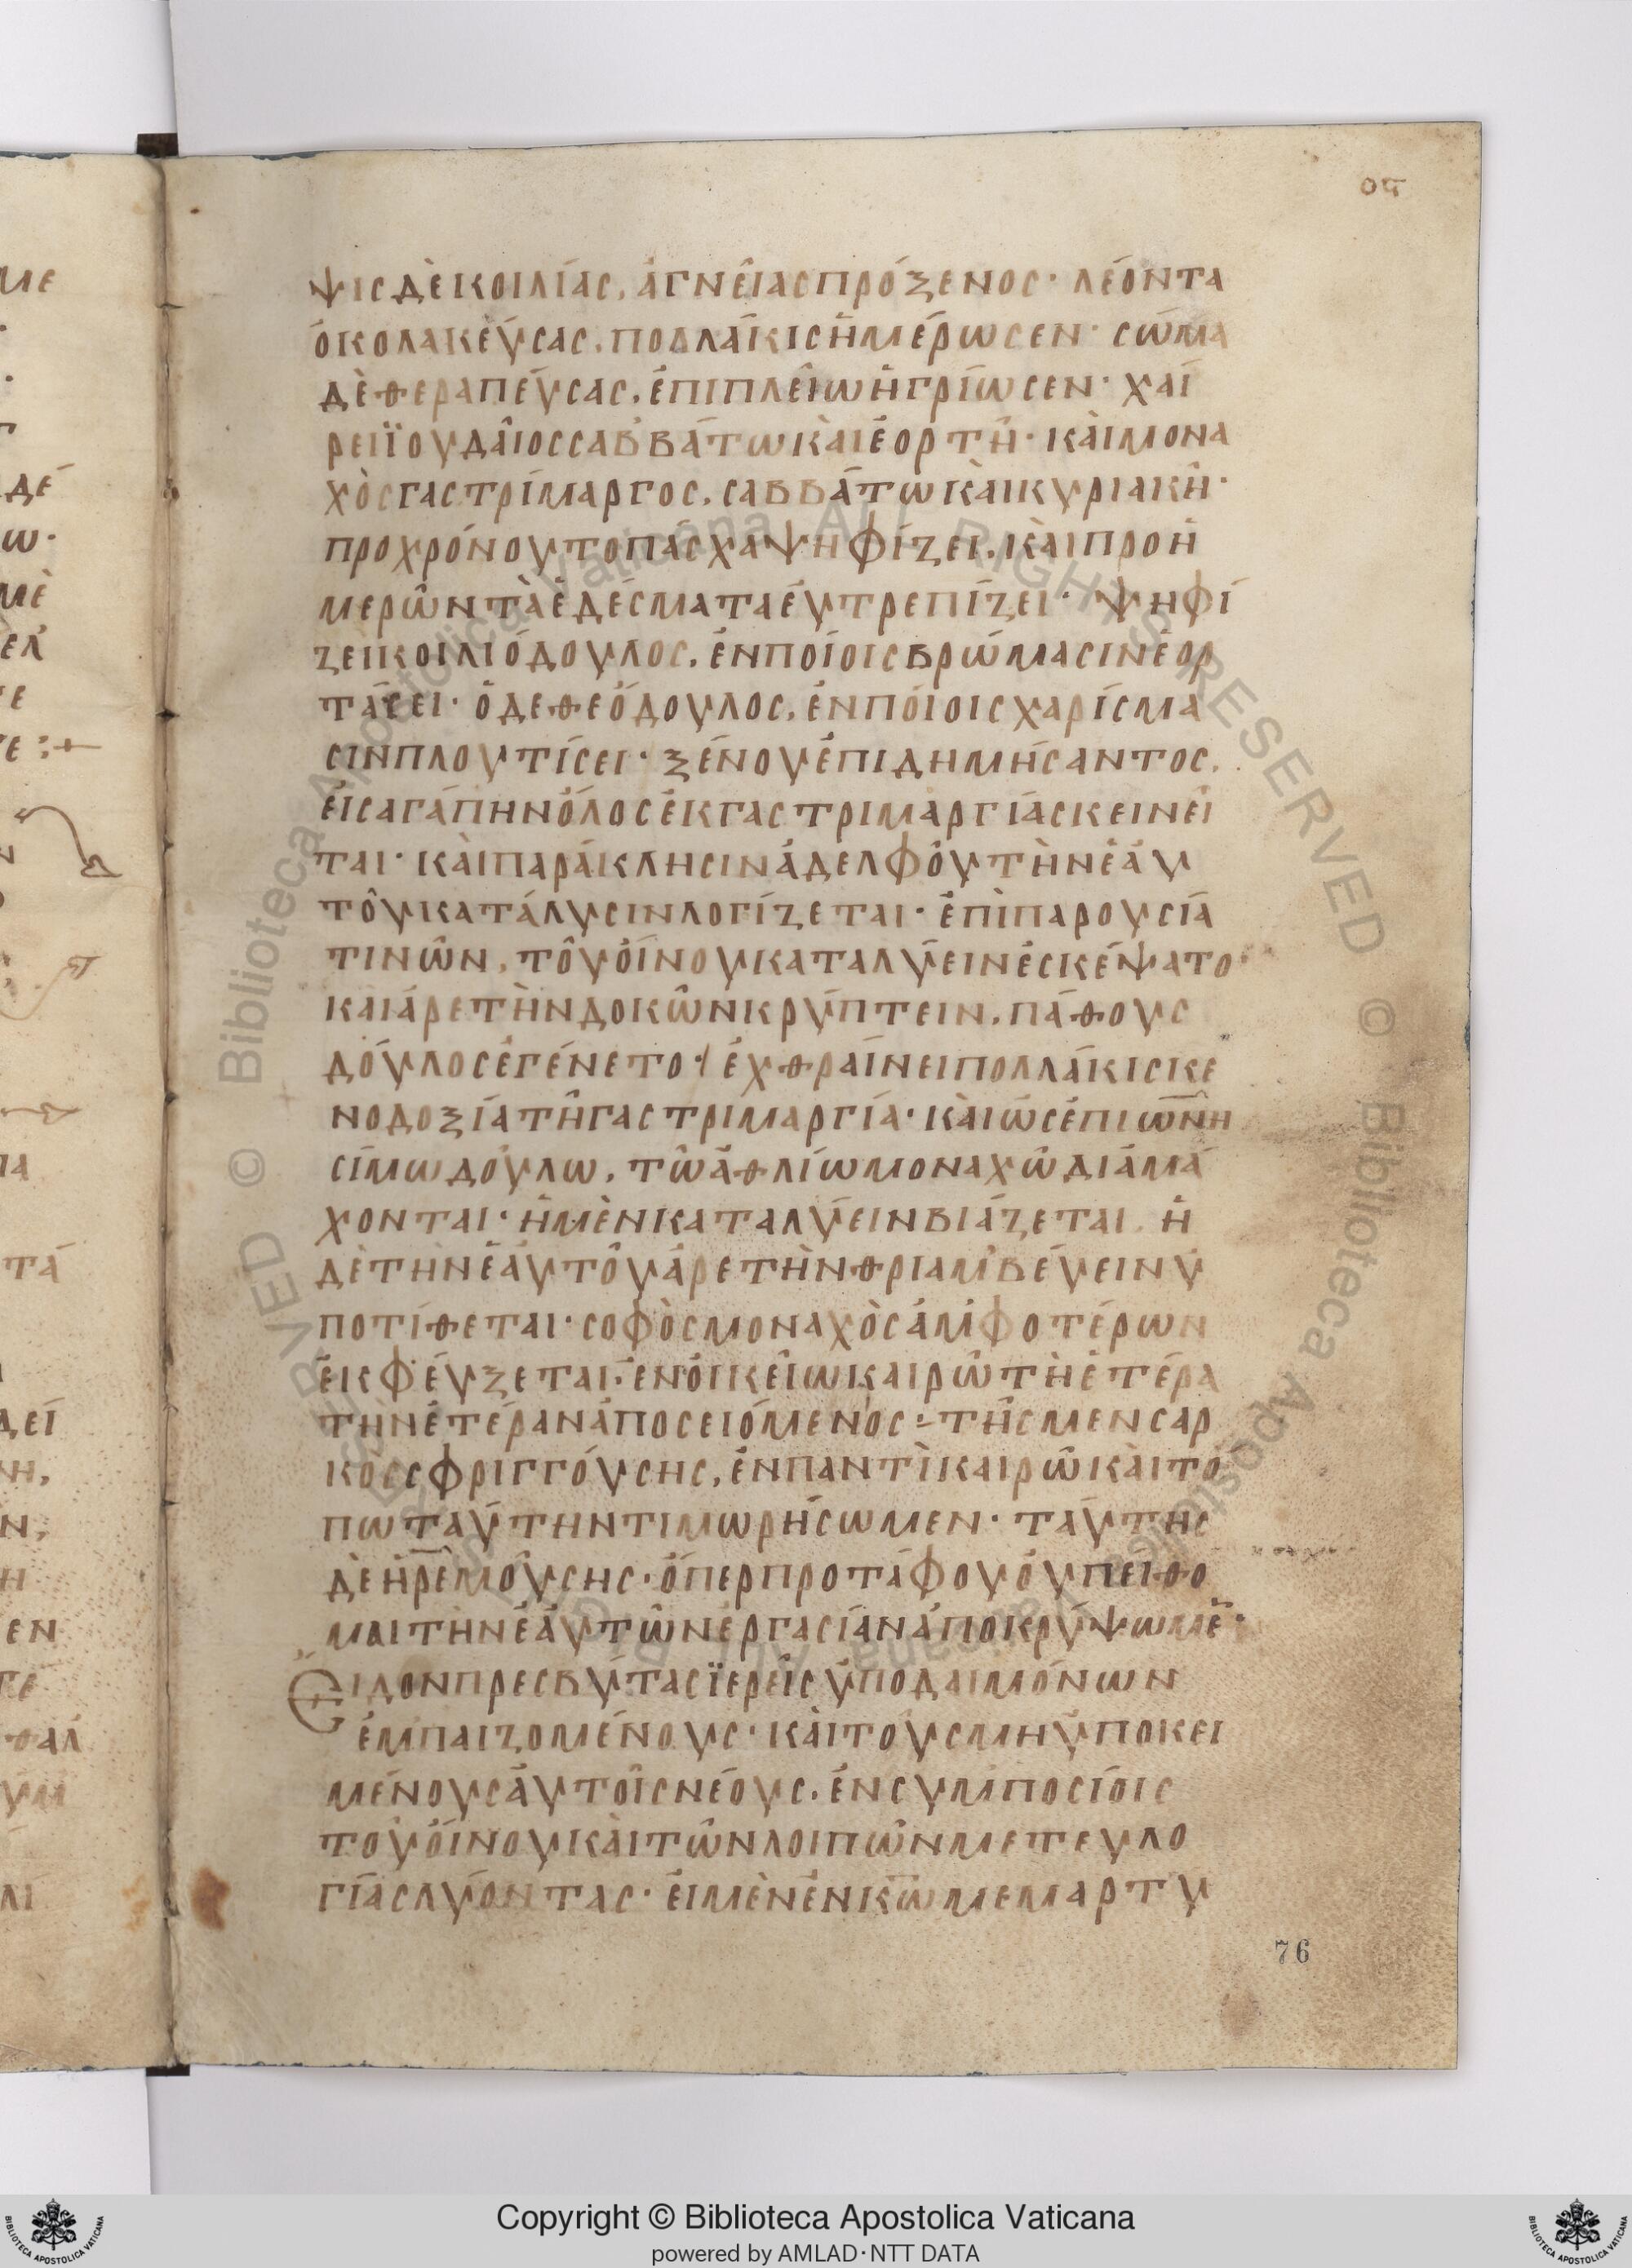 ος
ψις δὲ κοιλίας, ἁγνείας πρόξενος· λέοντα
ὁ κολακεύσας, πολλάκις ἡμέρωσεν· σῶμα
δὲ θεραπεύσας, ἐπιπλείω ἠγρίωσεν· χαί
ρει ϊουδαῖος σαββάτω καὶ ἑορτῆ· καὶ μονα
χὸς γαστρίμαργος, σαββάτω καὶ κυριακῆ·
προχρόνου το πάσχα ψηφίζει, καὶ προ ἡ
μερῶν τὰ ἐδέσματα εὐτρεπίζει· ψηφί
ζει κοιλιόδουλος, ἐν ποίοις βρώμασιν ἑορ
τάσει· ὁ δε θεόδουλος, ἐν ποίοις χαρίσμα
σιν πλουτίσει· ξένου ἐπιδημήσαντος,
εἰς αγάπην ὅλος ἐκ γαστριμαργίας κεινεῖ
ται· καὶ παράκλησιν ἀδελφοῦ τὴν ἑαυ
τοῦ κατάλυσιν λογίζεται· ἐπὶ παρουσία
τινῶν, τοῦ οἴνου καταλύειν ἐσκέψατο·
και ἀρετὴν δοκῶν κρύπτειν, πάθους
δοῦλος ἐγένετο·/ ἐχθραίνει πολλάκις κε
νοδοξία τῆ γαστριμαργία· καὶ ὡς ἐπι ὠνη
σίμω δούλω, τῶ ἀθλίω μοναχῶ διαμά
χονται· ἡ μὲν καταλύειν βιάζεται, ἡ
δὲ τὴν ἑαυτοῦ ἀρετὴν θριαμβεύειν ὑ
ποτίθεται· σοφὸς μοναχὸς ἀμφοτέρων
ἐκφεύξεται· ἐν οἰκείω καιρῶ τὴ ἑτέρα
τὴν ἑτέραν ἀποσειόμενος :- τῆς μεν σαρ
κὸς σφριγγούσης, ἐν παντὶ καιρῶ καὶ τό
πω ταύτην τιμωρήσωμεν· ταύτης
δε ἠρεμούσης· ὅπερ προ τάφου οὐ πείθο
μαι τὴν ἑαυτῶν ἐργασίαν ἀποκρύψωμε̄·
Εἶδον πρεσβύτας ϊερεῖς ὑπο δαιμόνων
ἐμπαιζομένους· καὶ τοὺς μὴ ὑποκει
μένους αὐτοῖς νέους, ἐν συμποσίοις
τοῦ οἴνου καὶ τῶν λοιπῶν μετ ευλο
γίας λύοντας· εἰ μὲν ἐν κ̄ω̄ μεμαρτυ
76
Copyright © Biblioteca Apostolica Vaticana
powered by AMLAD·NTT DATA